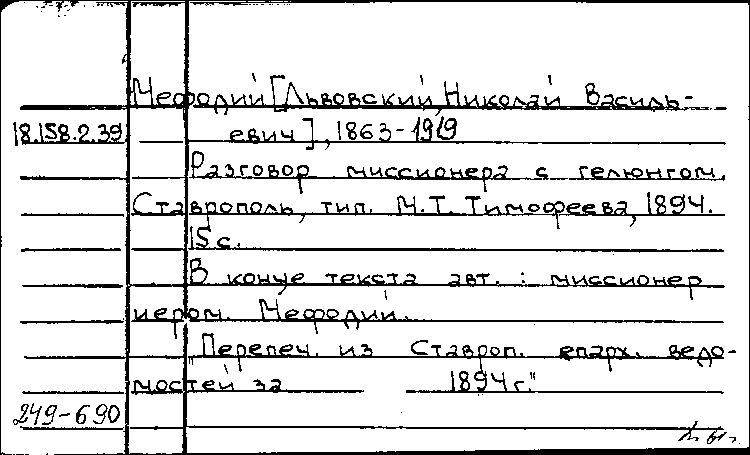 Мефодий [Львовский, Николай Василь-
18.158.2.39 евич], 1863-1919
Разговор миссионера с гелюнгом.
Ставрополь, тип. М.Т. Тимофеева, 1894.
15 с.
В конце текста авт. : миссионер
иером. Мефодий.
"Перепеч. из Ставроп. епарх. ведо-
мостей за 1894 г."
249-690